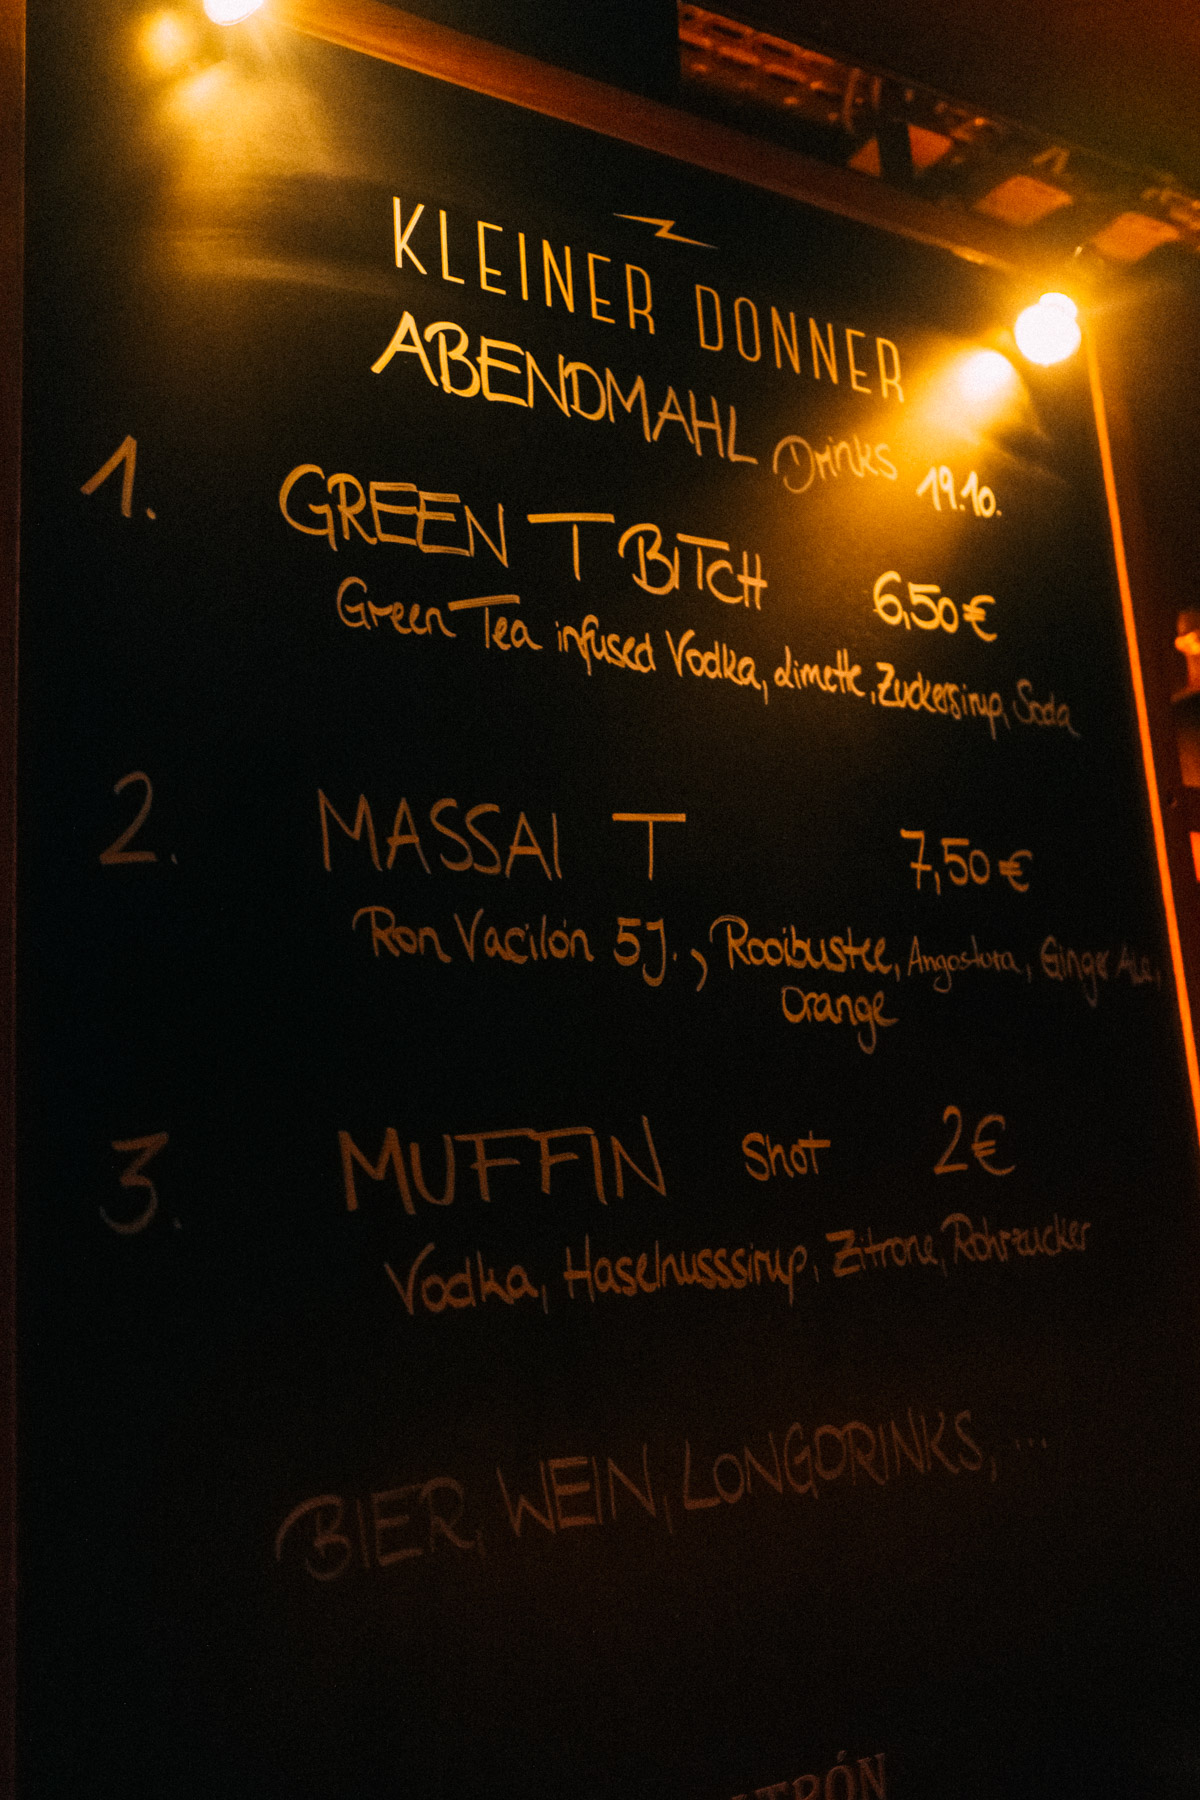 KLEINER DONNER
ABENDMAHL Drinks 19.10.
1. GREEN T BITCH 6,50€
Green Tea infused Vodka, Limette, Zuckersirup, Soda
2. MASSAI T 7,50€
Ron Vacilón 5J., Rooibustee, Angostura, Ginger Ale,
Orange
3. MUFFIN Shot 2€
Vodka, Haselnusssirup, Zitrone, Rohrzucker
BIER, WEIN, LONGDRINKS, ...